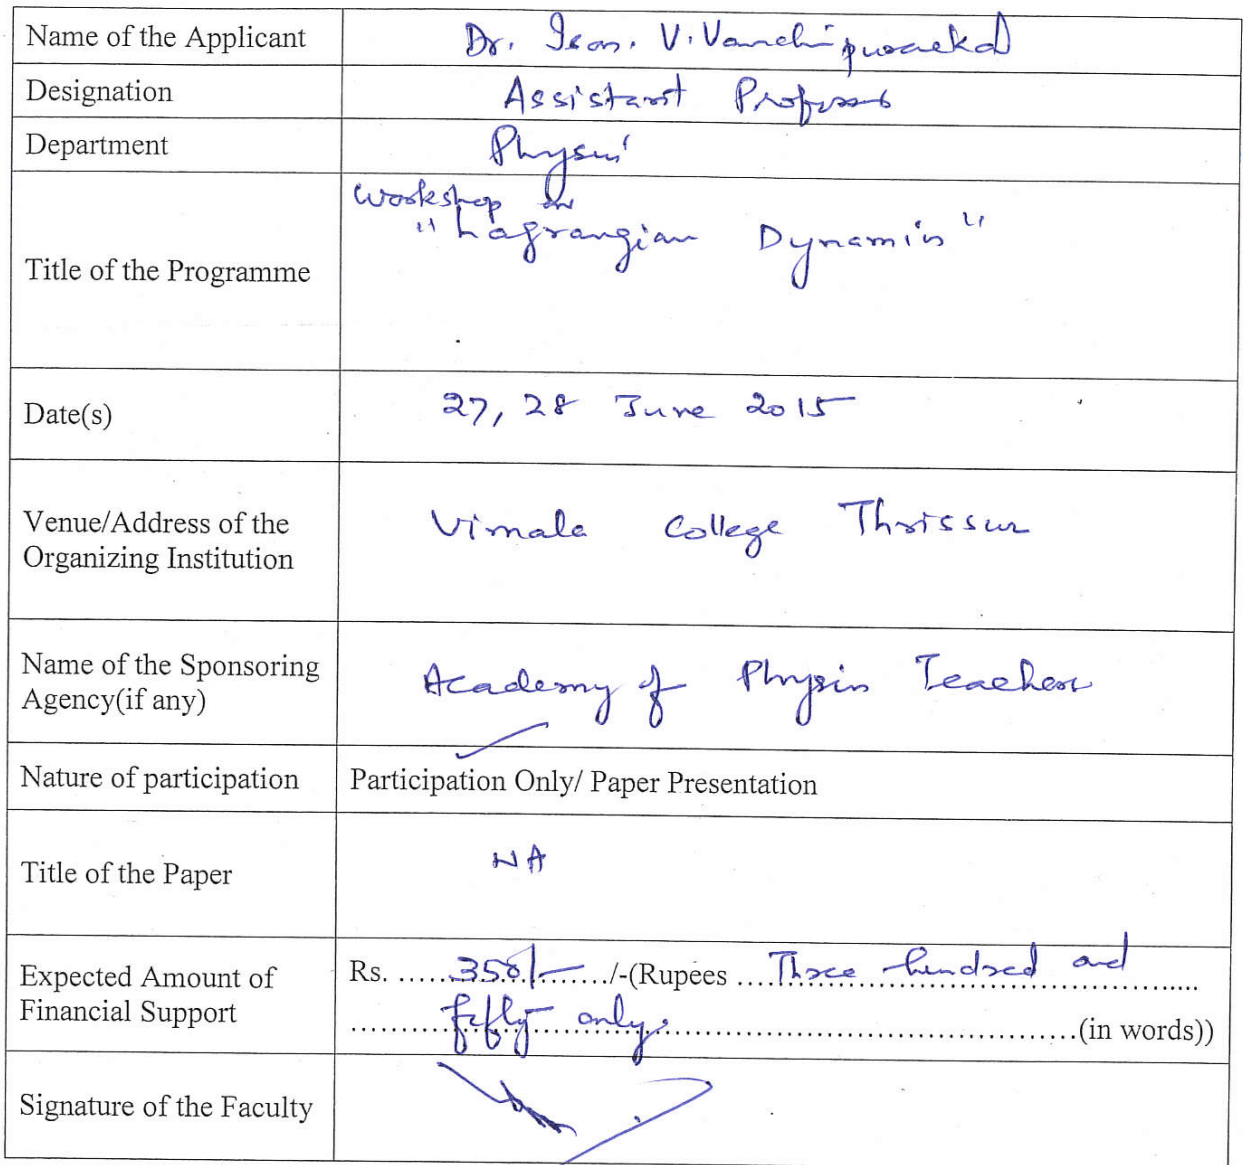 Name of the Applicant Dr. Ison. V. Vanchipurackal
Designation Assistant Professor
Department Physics
Workshop on
Title of the Programme "Lagrangian Dynamics"
Date(s) 27, 28 June 2015
Venue/Address of the
Organizing Institution Vimala College Thrissur
Name of the Sponsoring
Agency(if any) Academy of Physics Teachers
Nature of participation Participation Only/ Paper Presentation
Title of the Paper NA
Expected Amount of
Financial Support Rs. ......350/-....../-(Rupees ....Three hundred and.....
.........fifty only.........(in words))
Signature of the Faculty